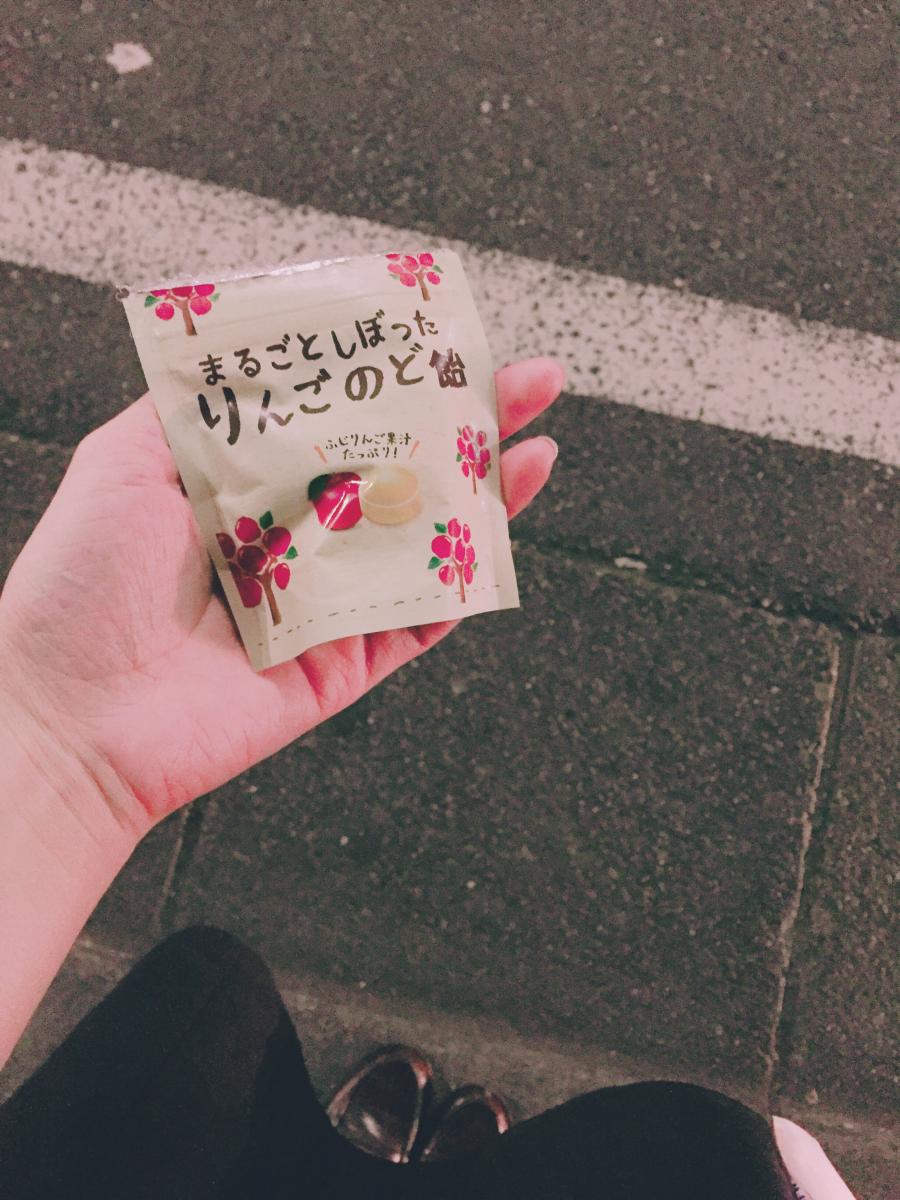 まるごとしぼった
りんごのど飴
ふじりんご果汁
たっぷり!